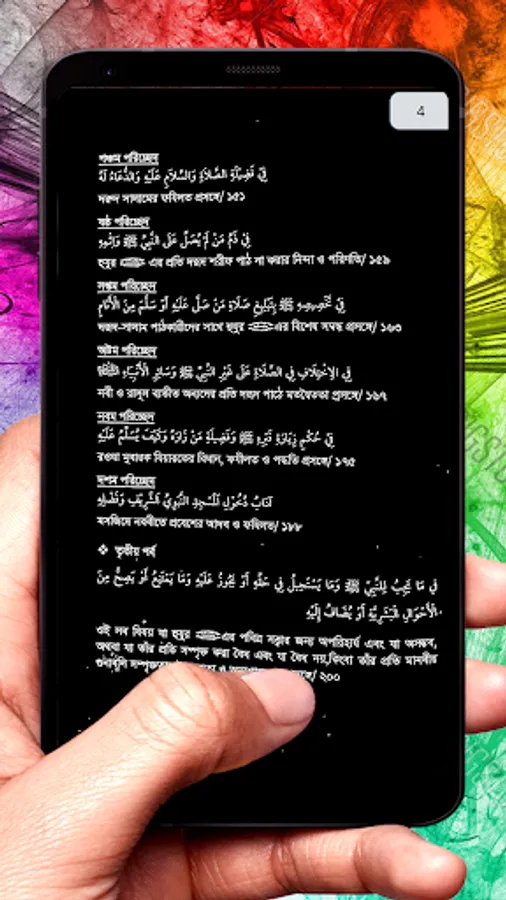 4
পঞ্চম পরিচ্ছেদ
فِيْ فَضِيْلَةِ الصَّلَاةِ وَالسَّلَامِ عَلَيْهِ وَالدُّعَاءُ لَهُ
দরূদ সালামের ফযিলত প্রসঙ্গে/ ১৫১
ষষ্ঠ পরিচ্ছেদ
فِيْ ذَمِّ مَنْ لَمْ يُصَلِّ عَلَى النَّبِيِّ ﷺ وَإِثْمِهِ
হুযুর ﷺ এর প্রতি দরূদ শরীফ পাঠ না করার নিন্দা ও পরিণতি/ ১৫৯
সপ্তম পরিচ্ছেদ
فِيْ تَخْصِيْصِهِ ﷺ بِتَبْلِيْغِ صَلَاةِ مَنْ صَلَّى عَلَيْهِ أَوْ سَلَّمَ مِنَ الْأَنَامِ
দরূদ-সালাম পাঠকারীদের সাথে হুযুর ﷺ এর বিশেষ সম্বন্ধ প্রসঙ্গে/ ১৬৩
অষ্টম পরিচ্ছেদ
فِي الِاخْتِلَافِ فِي الصَّلَاةِ عَلَى غَيْرِ النَّبِيِّ ﷺ وَسَائِرِ الْأَنْبِيَاءِ
নবী ও রাসূল ব্যতীত অন্যদের প্রতি দরূদ পাঠে মতবৈততা প্রসঙ্গে/ ১৬৭
নবম পরিচ্ছেদ
فِيْ حُكْمِ زِيَارَةِ قَبْرِهِ ﷺ وَفَضِيْلَةِ مَنْ زَارَهُ وَكَيْفَ يُسَلِّمُ عَلَيْهِ
রওযা মুবারক যিয়ারতের বিধান, ফযীলত ও পদ্ধতি প্রসঙ্গে/ ১৭৫
দশম পরিচ্ছেদ
آدَابُ دُخُوْلِ الْمَسْجِدِ النَّبَوِيِّ الشَّرِيْفِ وَفَضْلِهِ
মসজিদে নববীতে প্রবেশের আদব ও ফযিলত/ ১৮৮
❖ তৃতীয় পর্ব
فِيْ مَا يَجِبُ لِلنَّبِيِّ ﷺ وَمَا يَسْتَحِيْلُ فِيْ حَقِّهِ أَوْ يَجُوْزُ عَلَيْهِ وَمَا يَمْتَنِعُ أَوْ يَصِحُّ مِنَ
الْأَحْوَالِ الْبَشَرِيَّةِ أَوْ يُضَافُ إِلَيْهِ
ওই সব বিষয় যা হুযুর ﷺ এর পবিত্র সত্তার জন্য অপরিহার্য এবং যা অসম্ভব,
অথবা যা তাঁর প্রতি সম্পৃক্ত করা বৈধ এবং যা বৈধ নয়,কিংবা তাঁর প্রতি মানবীয়
গুণাবলি ২০০